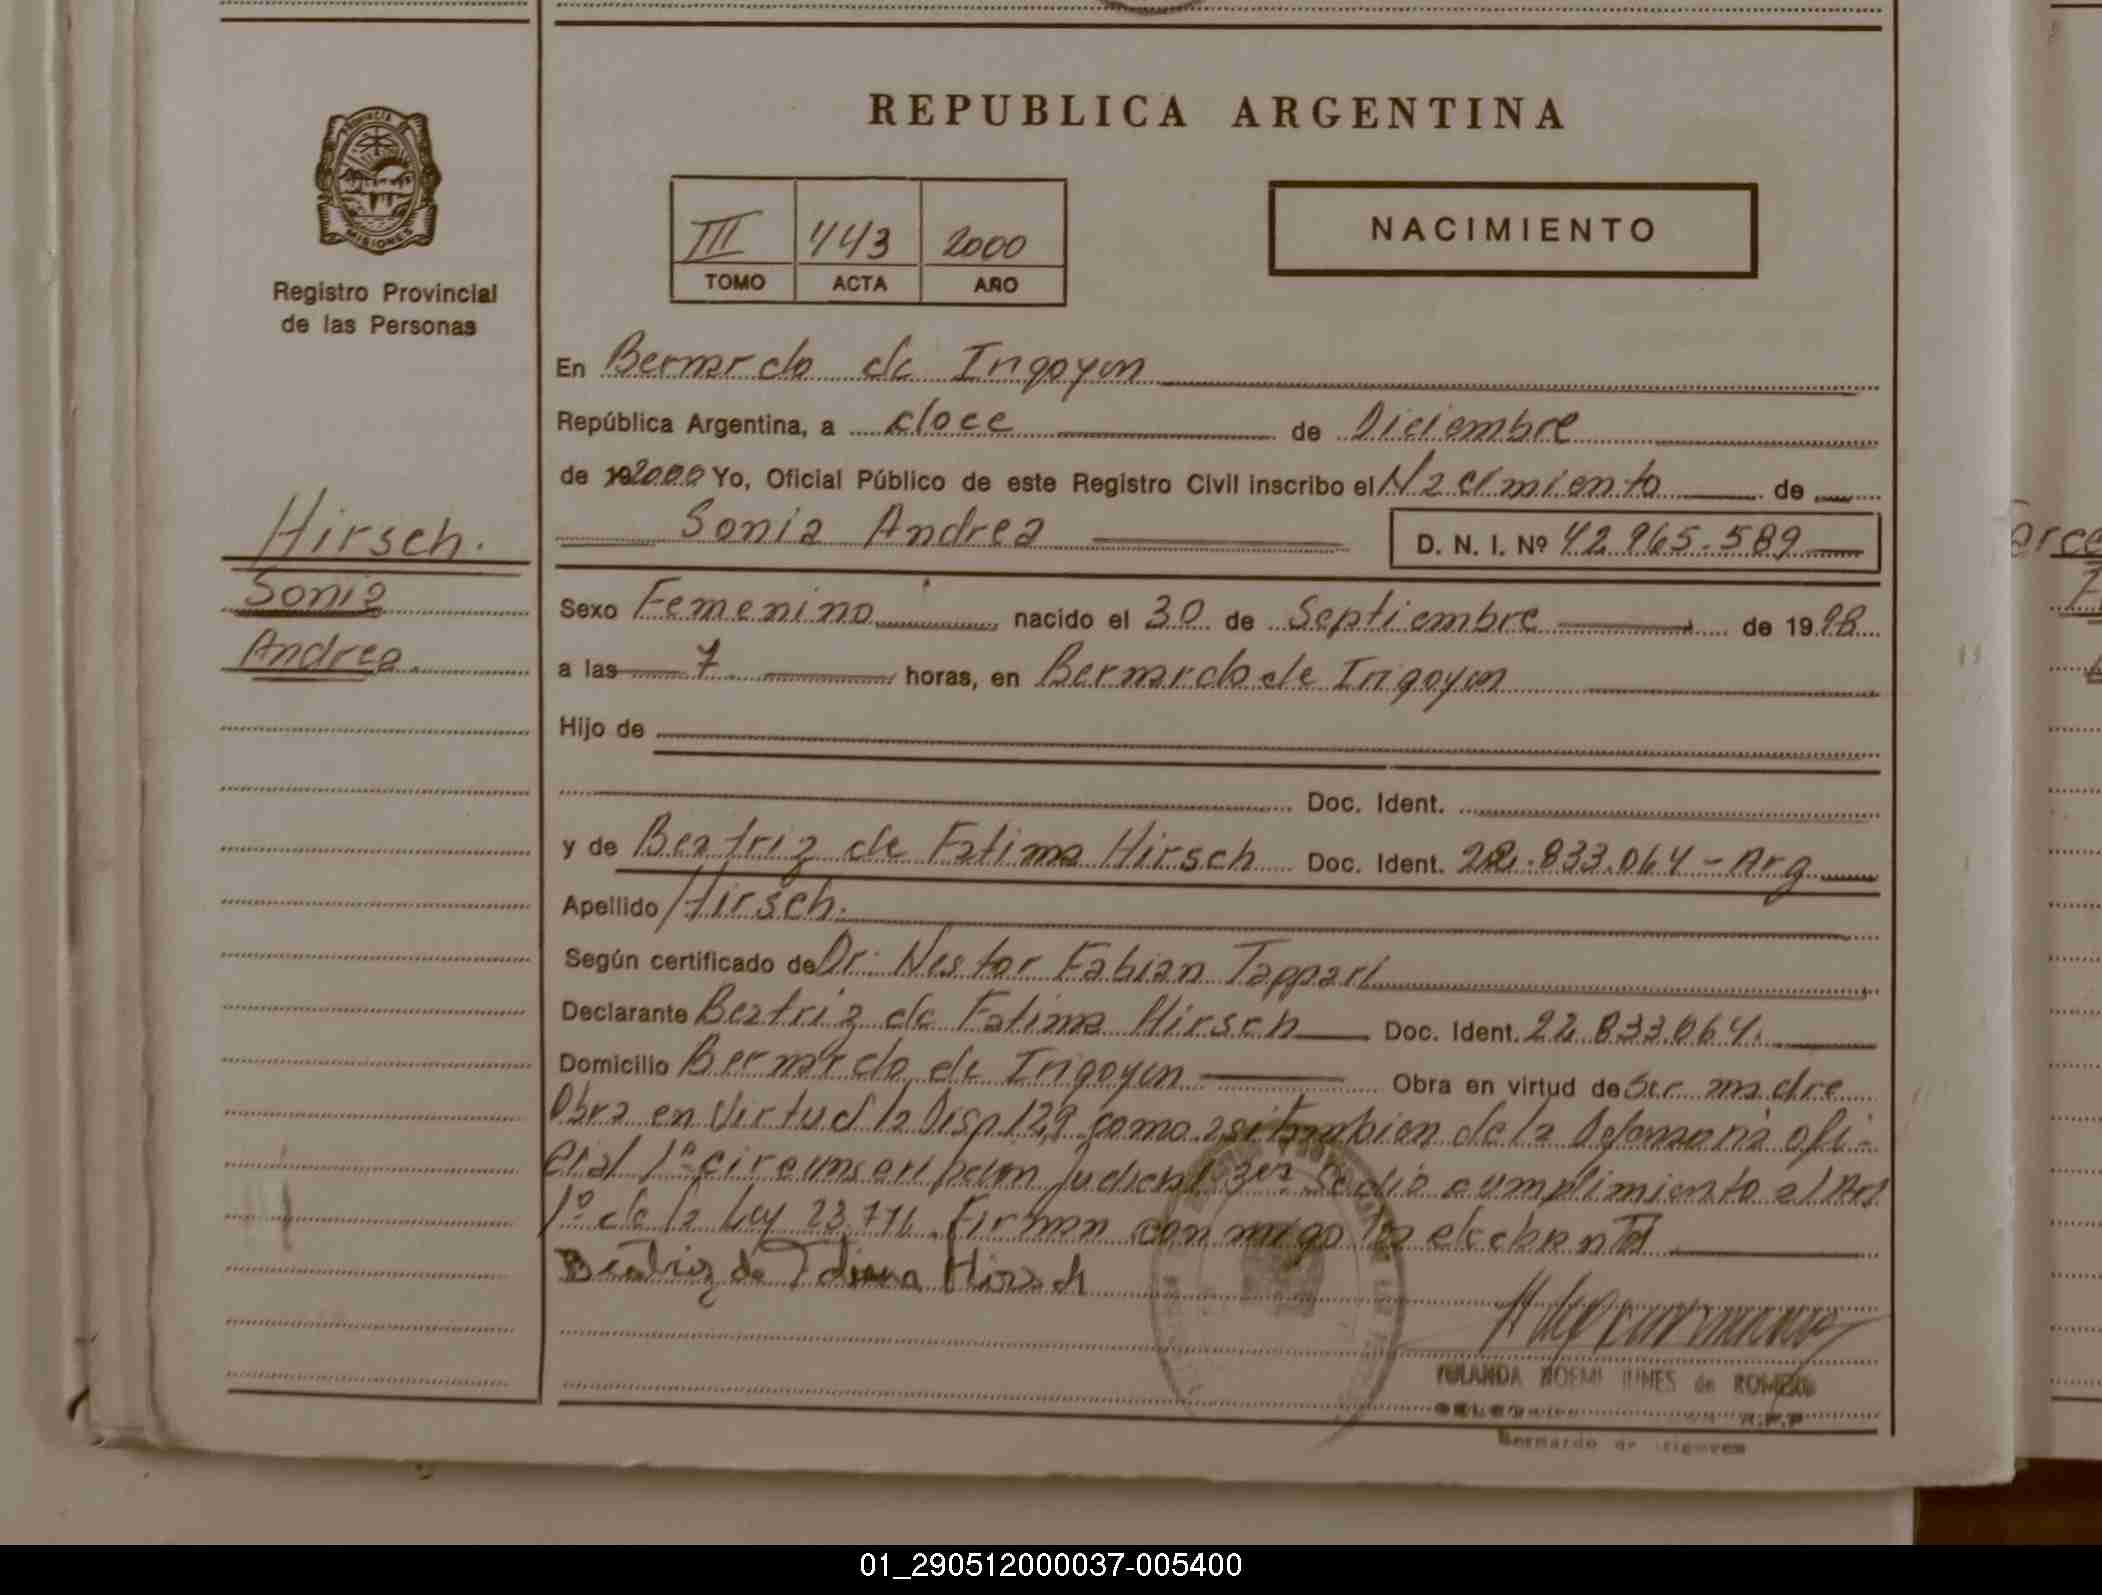 REPUBLICA ARGENTINA
PROVINCIA DE
MISIONES
Registro Provincial
de las Personas
III 443 2000
TOMO ACTA AÑO
NACIMIENTO
En Bernardo de Irigoyen
República Argentina, a doce de Diciembre
de 192000 Yo, Oficial Público de este Registro Civil inscribo el Nacimiento de
Sonia Andrea D. N. I. Nº 42.965.589
Hirsch.
Sonia
Andrea
Sexo Femenino nacido el 30 de Septiembre de 1998
a las 7 horas, en Bernardo de Irigoyen
Hijo de
Doc. Ident.
y de Beatriz de Fatima Hirsch Doc. Ident. 22.833.064 - Arg
Apellido Hirsch.
Según certificado de Dr. Nestor Fabian Tappari
Declarante Beatriz de Fatima Hirsch Doc. Ident. 22.833.064.
Domicilio Bernardo de Irigoyen Obra en virtud de Ser madre
Obra en Virtud la Disp 129 como asi tambien de la Defensoria ofi-
cial 1º circunscripcion Judicial se dio cumplimiento al Art
1º de la Ley Firman con migo la declarante
Beatriz de Fatima Hirsch
YOLANDA NOEMI de ROMERO
R.P.P
Bernardo de Irigoyen
01_290512000037-005400